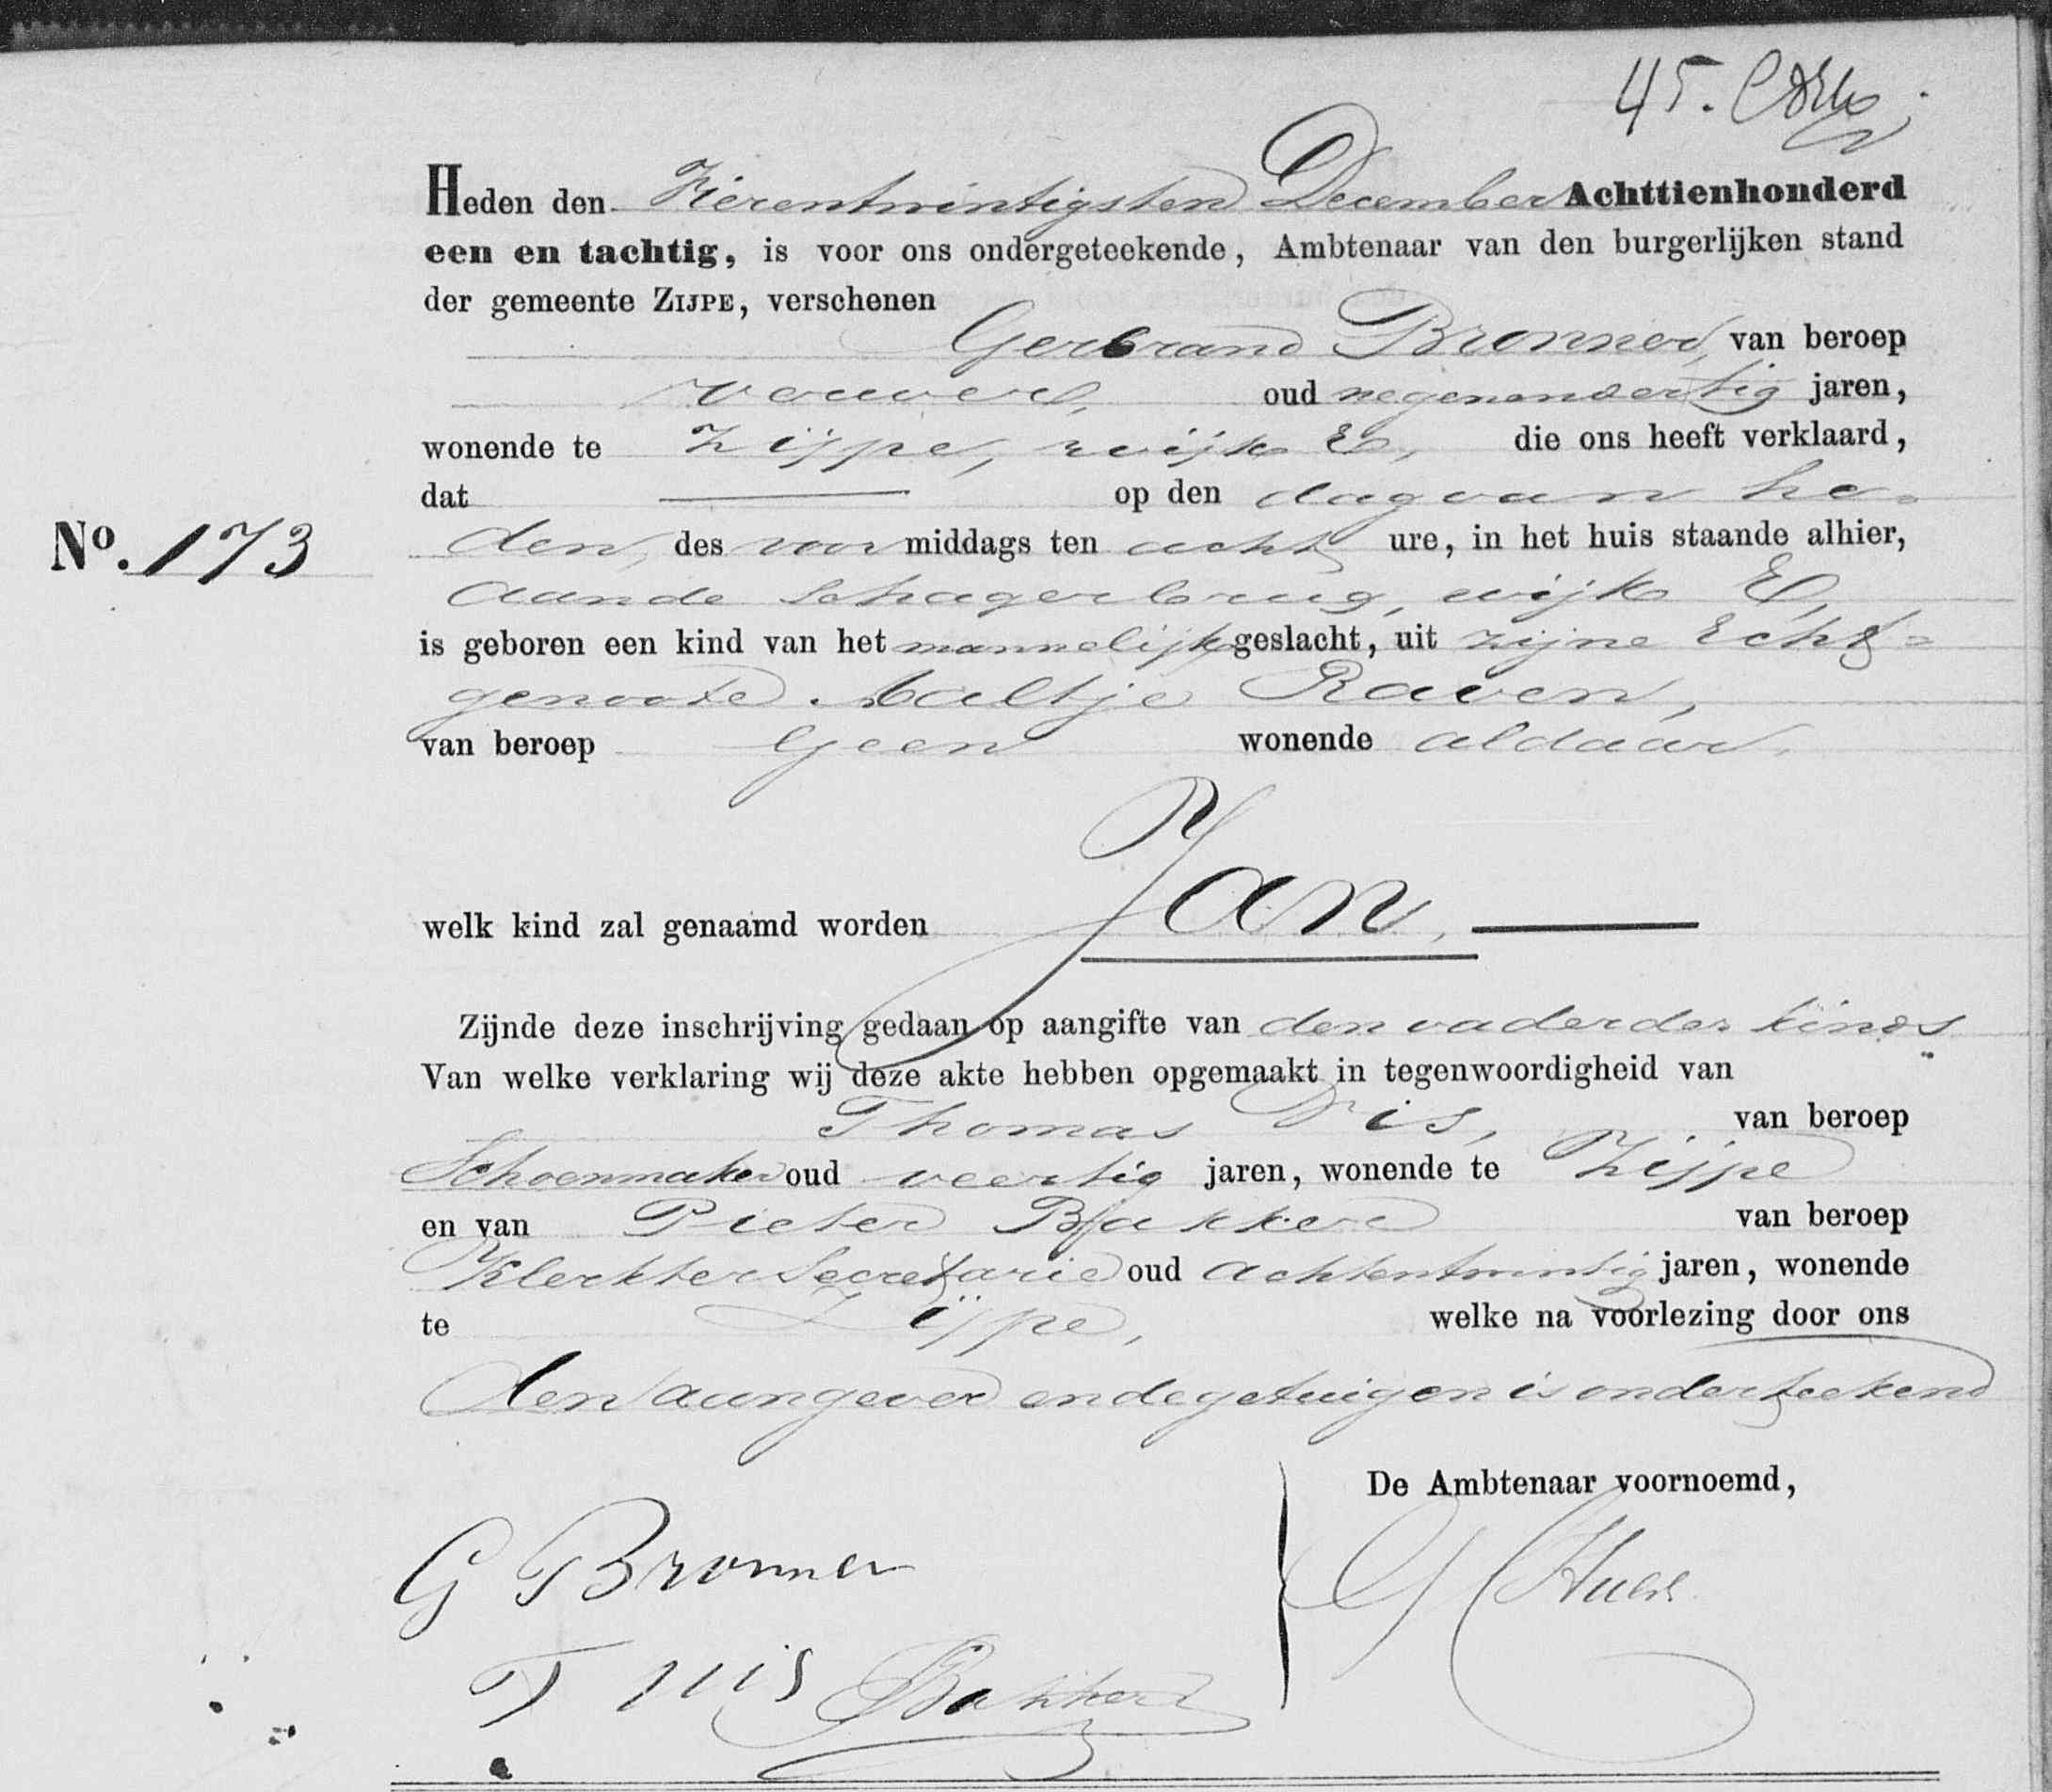 45.
Heden den Vierentwintigsten December Achttienhonderd
een en tachtig, is voor ons ondergeteekende, Ambtenaar van den burgerlijken stand
der gemeente ZIJPE, verschenen
Gerbrand Bronner, van beroep
verver, oud negenendertig jaren,
wonende te Zijpe, wijk E, die ons heeft verklaard,
dat op den dag van he-
den, des voor middags ten acht ure, in het huis staande alhier,
No. 173
aan de Schagerbrug, wijk E,
is geboren een kind van het mannelijk geslacht, uit zijne Echt-
genoote Aaltje Raven,
van beroep Geen wonende aldaar,
welk kind zal genaamd worden Jan,
Zijnde deze inschrijving gedaan op aangifte van den vader des kinds
Van welke verklaring wij deze akte hebben opgemaakt in tegenwoordigheid van
Thomas Vis, van beroep
Schoenmaker oud veertig jaren, wonende te Zijpe
en van Pieter Bakker van beroep
Klerk ter Secretarie oud achtentwintig jaren, wonende
te Zijpe, welke na voorlezing door ons
den aangever en de getuigen is onderteekend
De Ambtenaar voornoemd,
G Bronner
T Vis PBakker